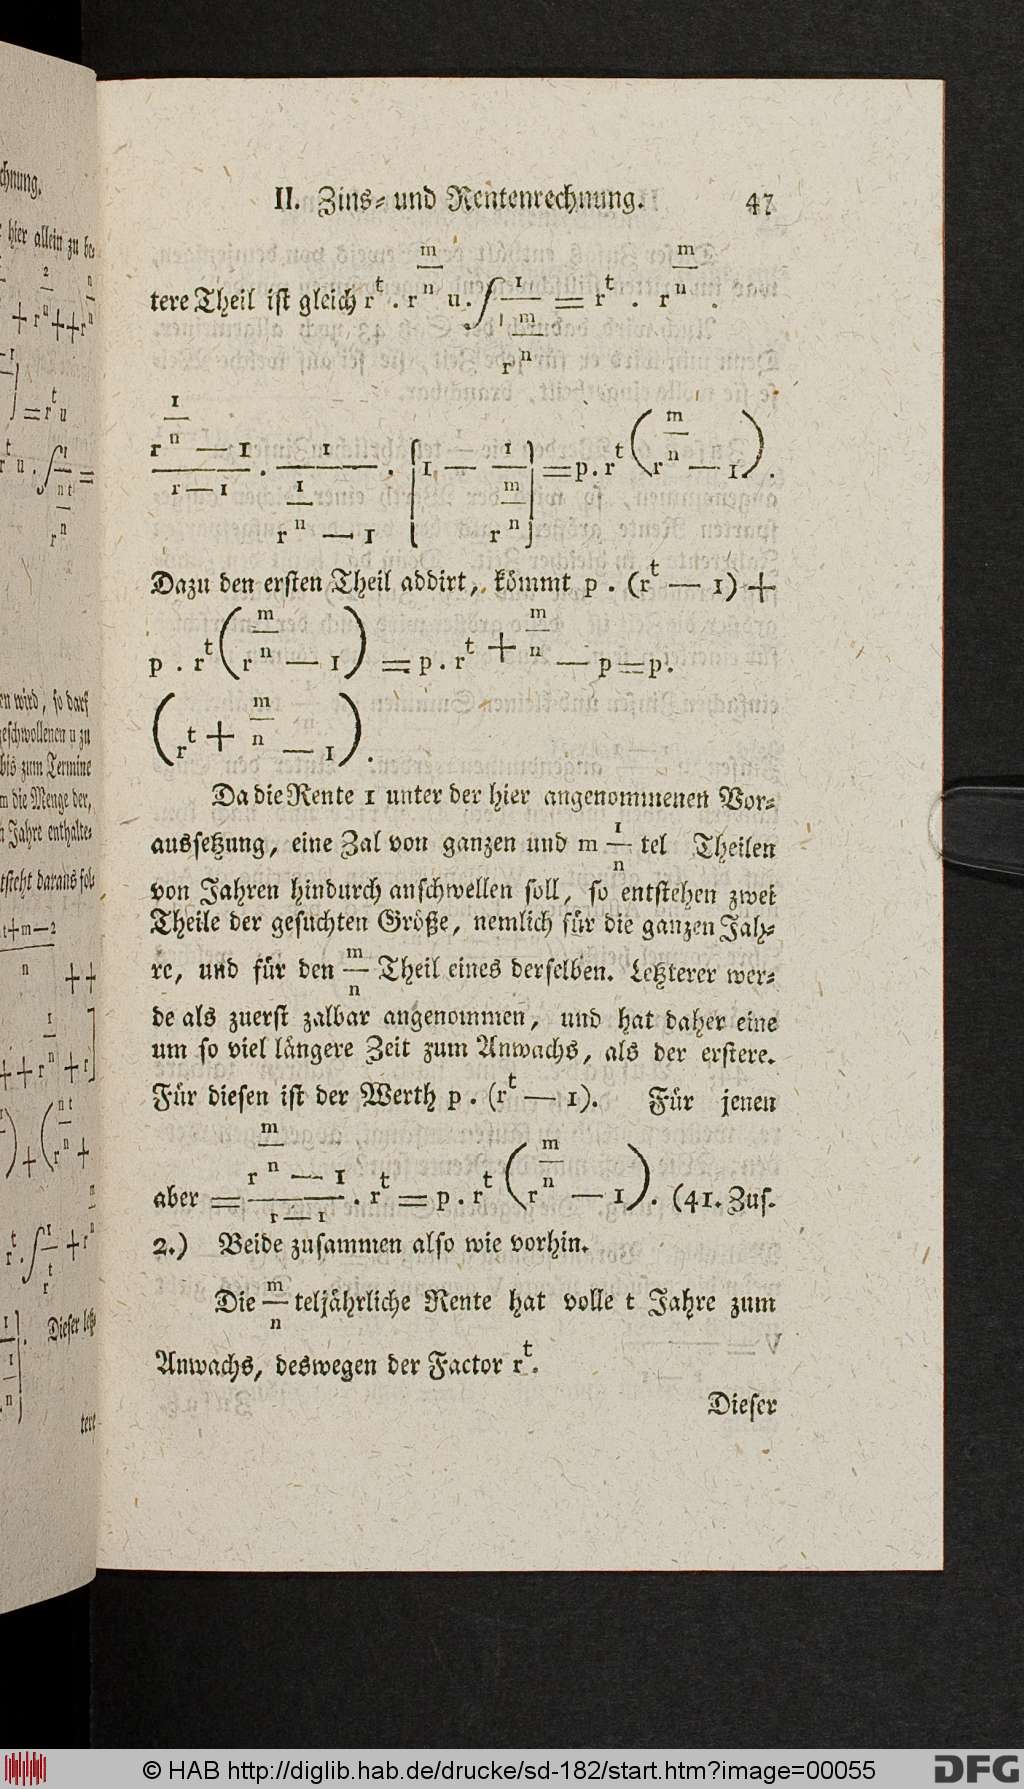 II. Zins- und Rentenrechnung. 47
tere Theil ist gleich r^t . r^(m/n) u. ∫ 1/r^(m/n) = r^t . r^(m/n) .
(r^(1/n) — 1)/(r — 1) . 1/(r^(1/n) — 1) . [1 — 1/r^(m/n)] = p. r^t (r^(m/n) — 1) .
Dazu den ersten Theil addirt, kömmt p . (r^t — 1) +
p . r^t (r^(m/n) — 1) = p . r^(t + m/n) — p = p.
(r^(t + m/n) — 1).
Da die Rente 1 unter der hier angenommenen Vor-
aussetzung, eine Zal von ganzen und m 1/n tel Theilen
von Jahren hindurch anschwellen soll, so entstehen zwei
Theile der gesuchten Größe, nemlich für die ganzen Jah-
re, und für den m/n Theil eines derselben. Letzterer wer-
de als zuerst zalbar angenommen, und hat daher eine
um so viel längere Zeit zum Anwachs, als der erstere.
Für diesen ist der Werth p . (r^t — 1). Für jenen
aber = (r^(m/n) — 1)/(r — 1) . r^t = p . r^t (r^(m/n) — 1). (41. Zus.
2.) Beide zusammen also wie vorhin.
Die m/n teljährliche Rente hat volle t Jahre zum
Anwachs, deswegen der Factor r^t.
Dieser
© HAB http://diglib.hab.de/drucke/sd-182/start.htm?image=00055
DFG